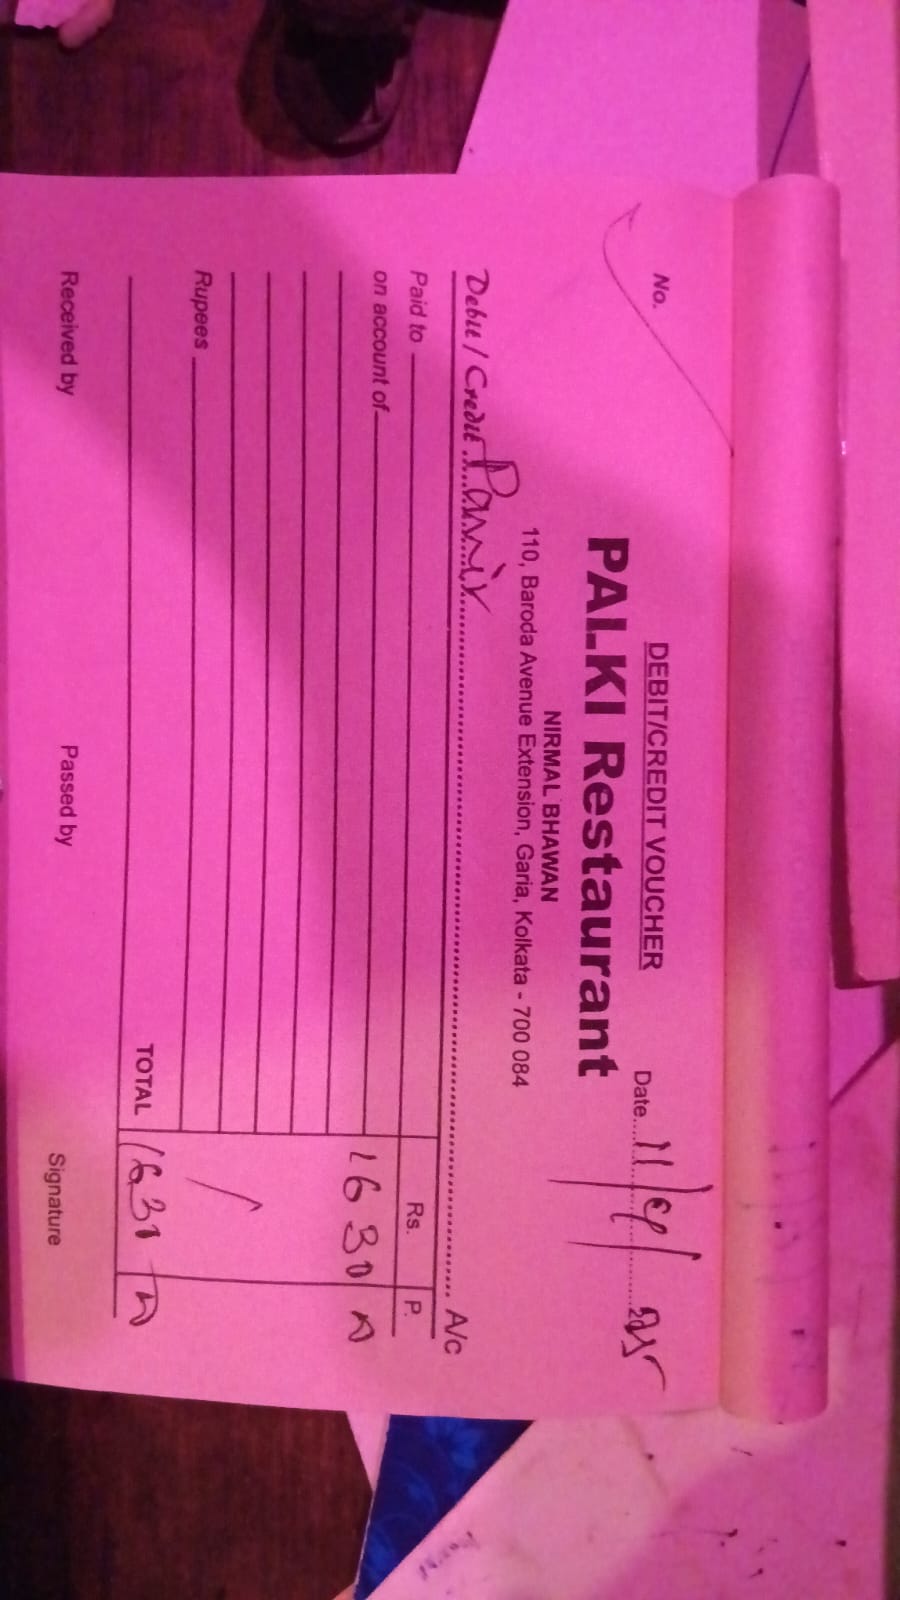 No.
DEBIT/CREDIT VOUCHER
Date
PALKI Restaurant
NIRMAL BHAWAN
110, Baroda Avenue Extension, Garia, Kolkata - 700 084
Debit / Credit A/c
Paid to Rs. P.
on account of 1630
Rupees
TOTAL 1630
Received by Passed by Signature